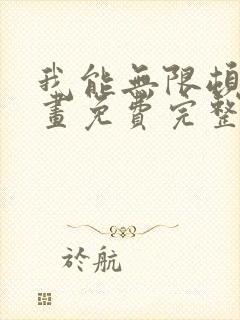 我能無限頓
畫免費完整
於航